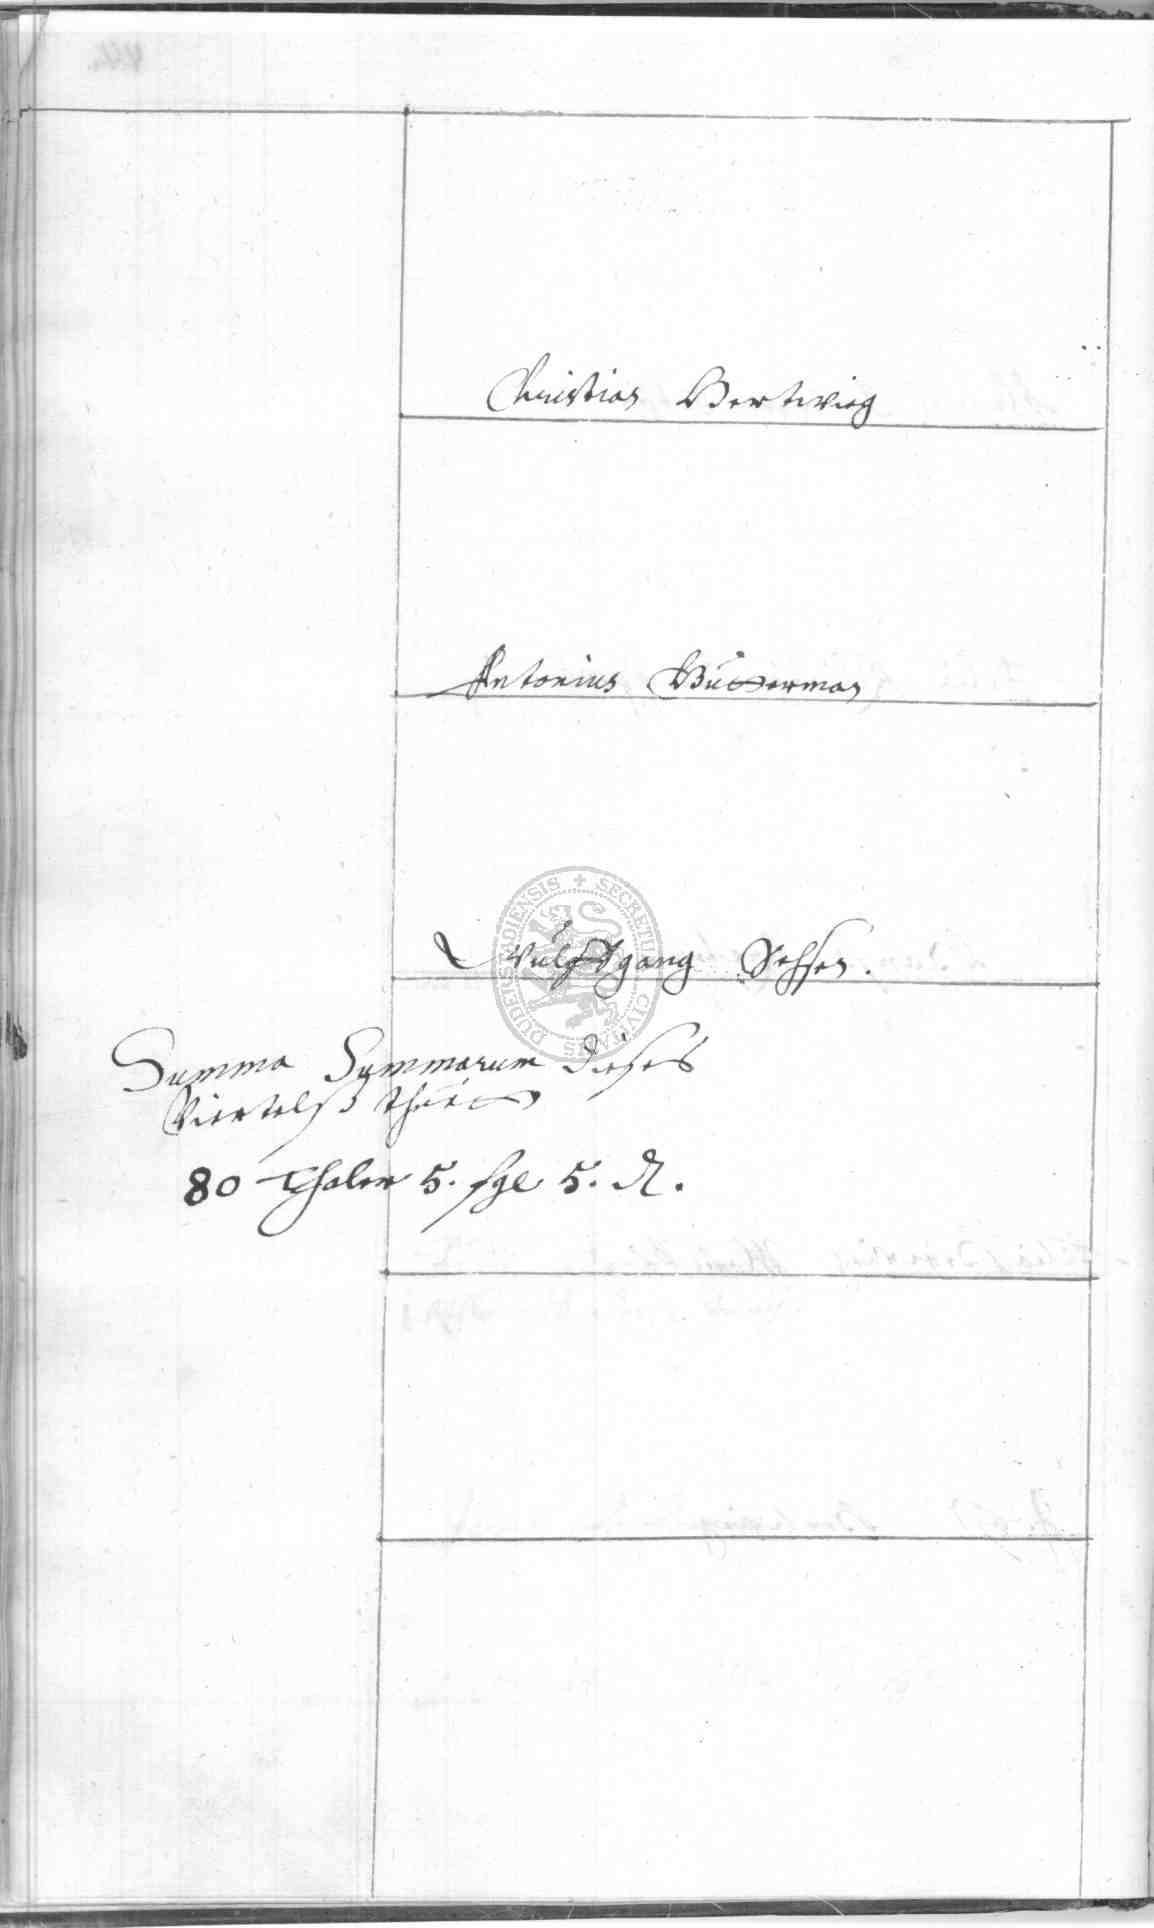 Christian Bertwig
Antonius Büsserman
Wulffgang Sehsen.
Summa Summarum dieses
Viertelß thuen
80 Thaler 5. sgl 5. d.
DUDERSTADIENSIS + SECRETUM CIVITATIS